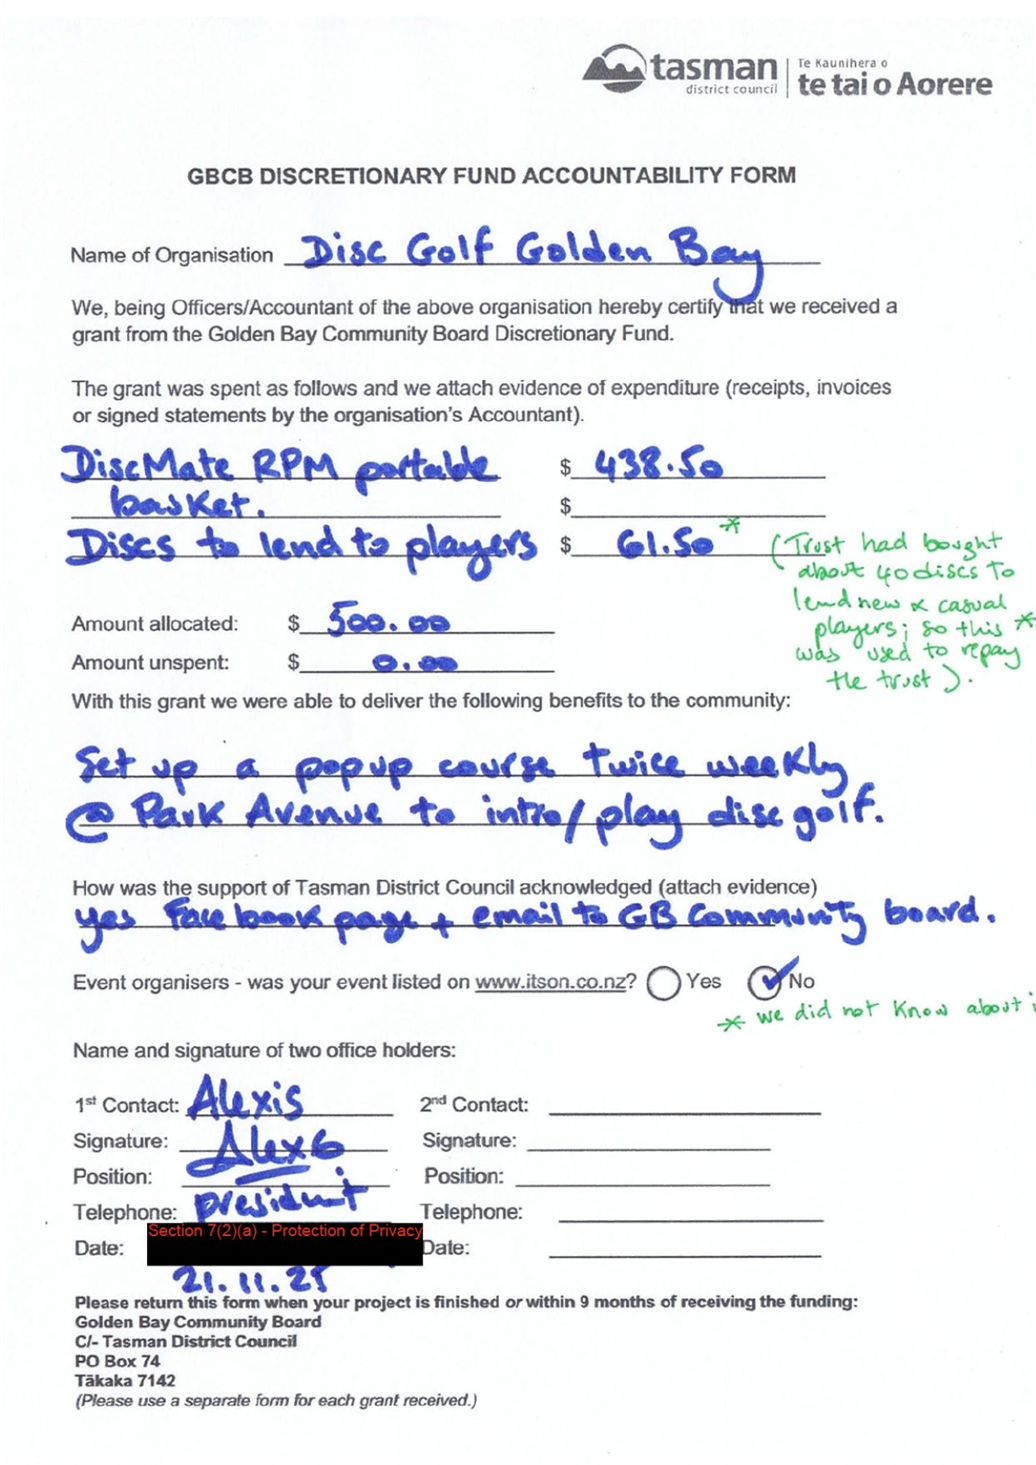 tasman
district council
Te Kaunihera o
te tai o Aorere
GBCB DISCRETIONARY FUND ACCOUNTABILITY FORM
Name of Organisation Disc Golf Golden Bay
We, being Officers/Accountant of the above organisation hereby certify that we received a
grant from the Golden Bay Community Board Discretionary Fund.
The grant was spent as follows and we attach evidence of expenditure (receipts, invoices
or signed statements by the organisation's Accountant).
DiscMate RPM portable $ 438.50
basket. $
Discs to lend to players $ 61.50 *
(Trust had bought
about 40 discs to
lend new & casual
players; so this *
was used to repay
the trust).
Amount allocated: $ 500.00
Amount unspent: $ 0.00
With this grant we were able to deliver the following benefits to the community:
Set up a popup course twice weekly
@ Park Avenue to intro/play disc golf.
How was the support of Tasman District Council acknowledged (attach evidence)
yes Facebook page + email to GB Community board.
Event organisers - was your event listed on www.itson.co.nz? Yes No
* we did not know about i
Name and signature of two office holders:
1st Contact: Alexis 2nd Contact:
Signature: Alex G Signature:
Position: Position:
Telephone: president Telephone:
Section 7(2)(a) - Protection of Privacy
Date: Date:
21.11.25
Please return this form when your project is finished or within 9 months of receiving the funding:
Golden Bay Community Board
C/- Tasman District Council
PO Box 74
Tākaka 7142
(Please use a separate form for each grant received.)